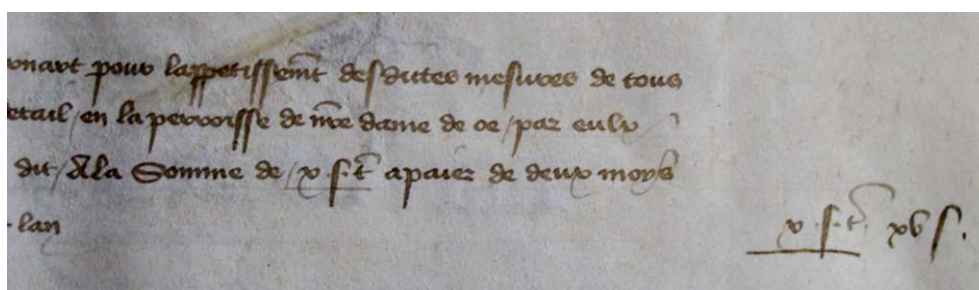 onart pour lappetissemt desdictes mesures de tous
etail / en la perroisse de nre dame de oe / par eulx
dit / A la Somme de / x s. t apaier de deux moys
lan
x. s. t. xv s.